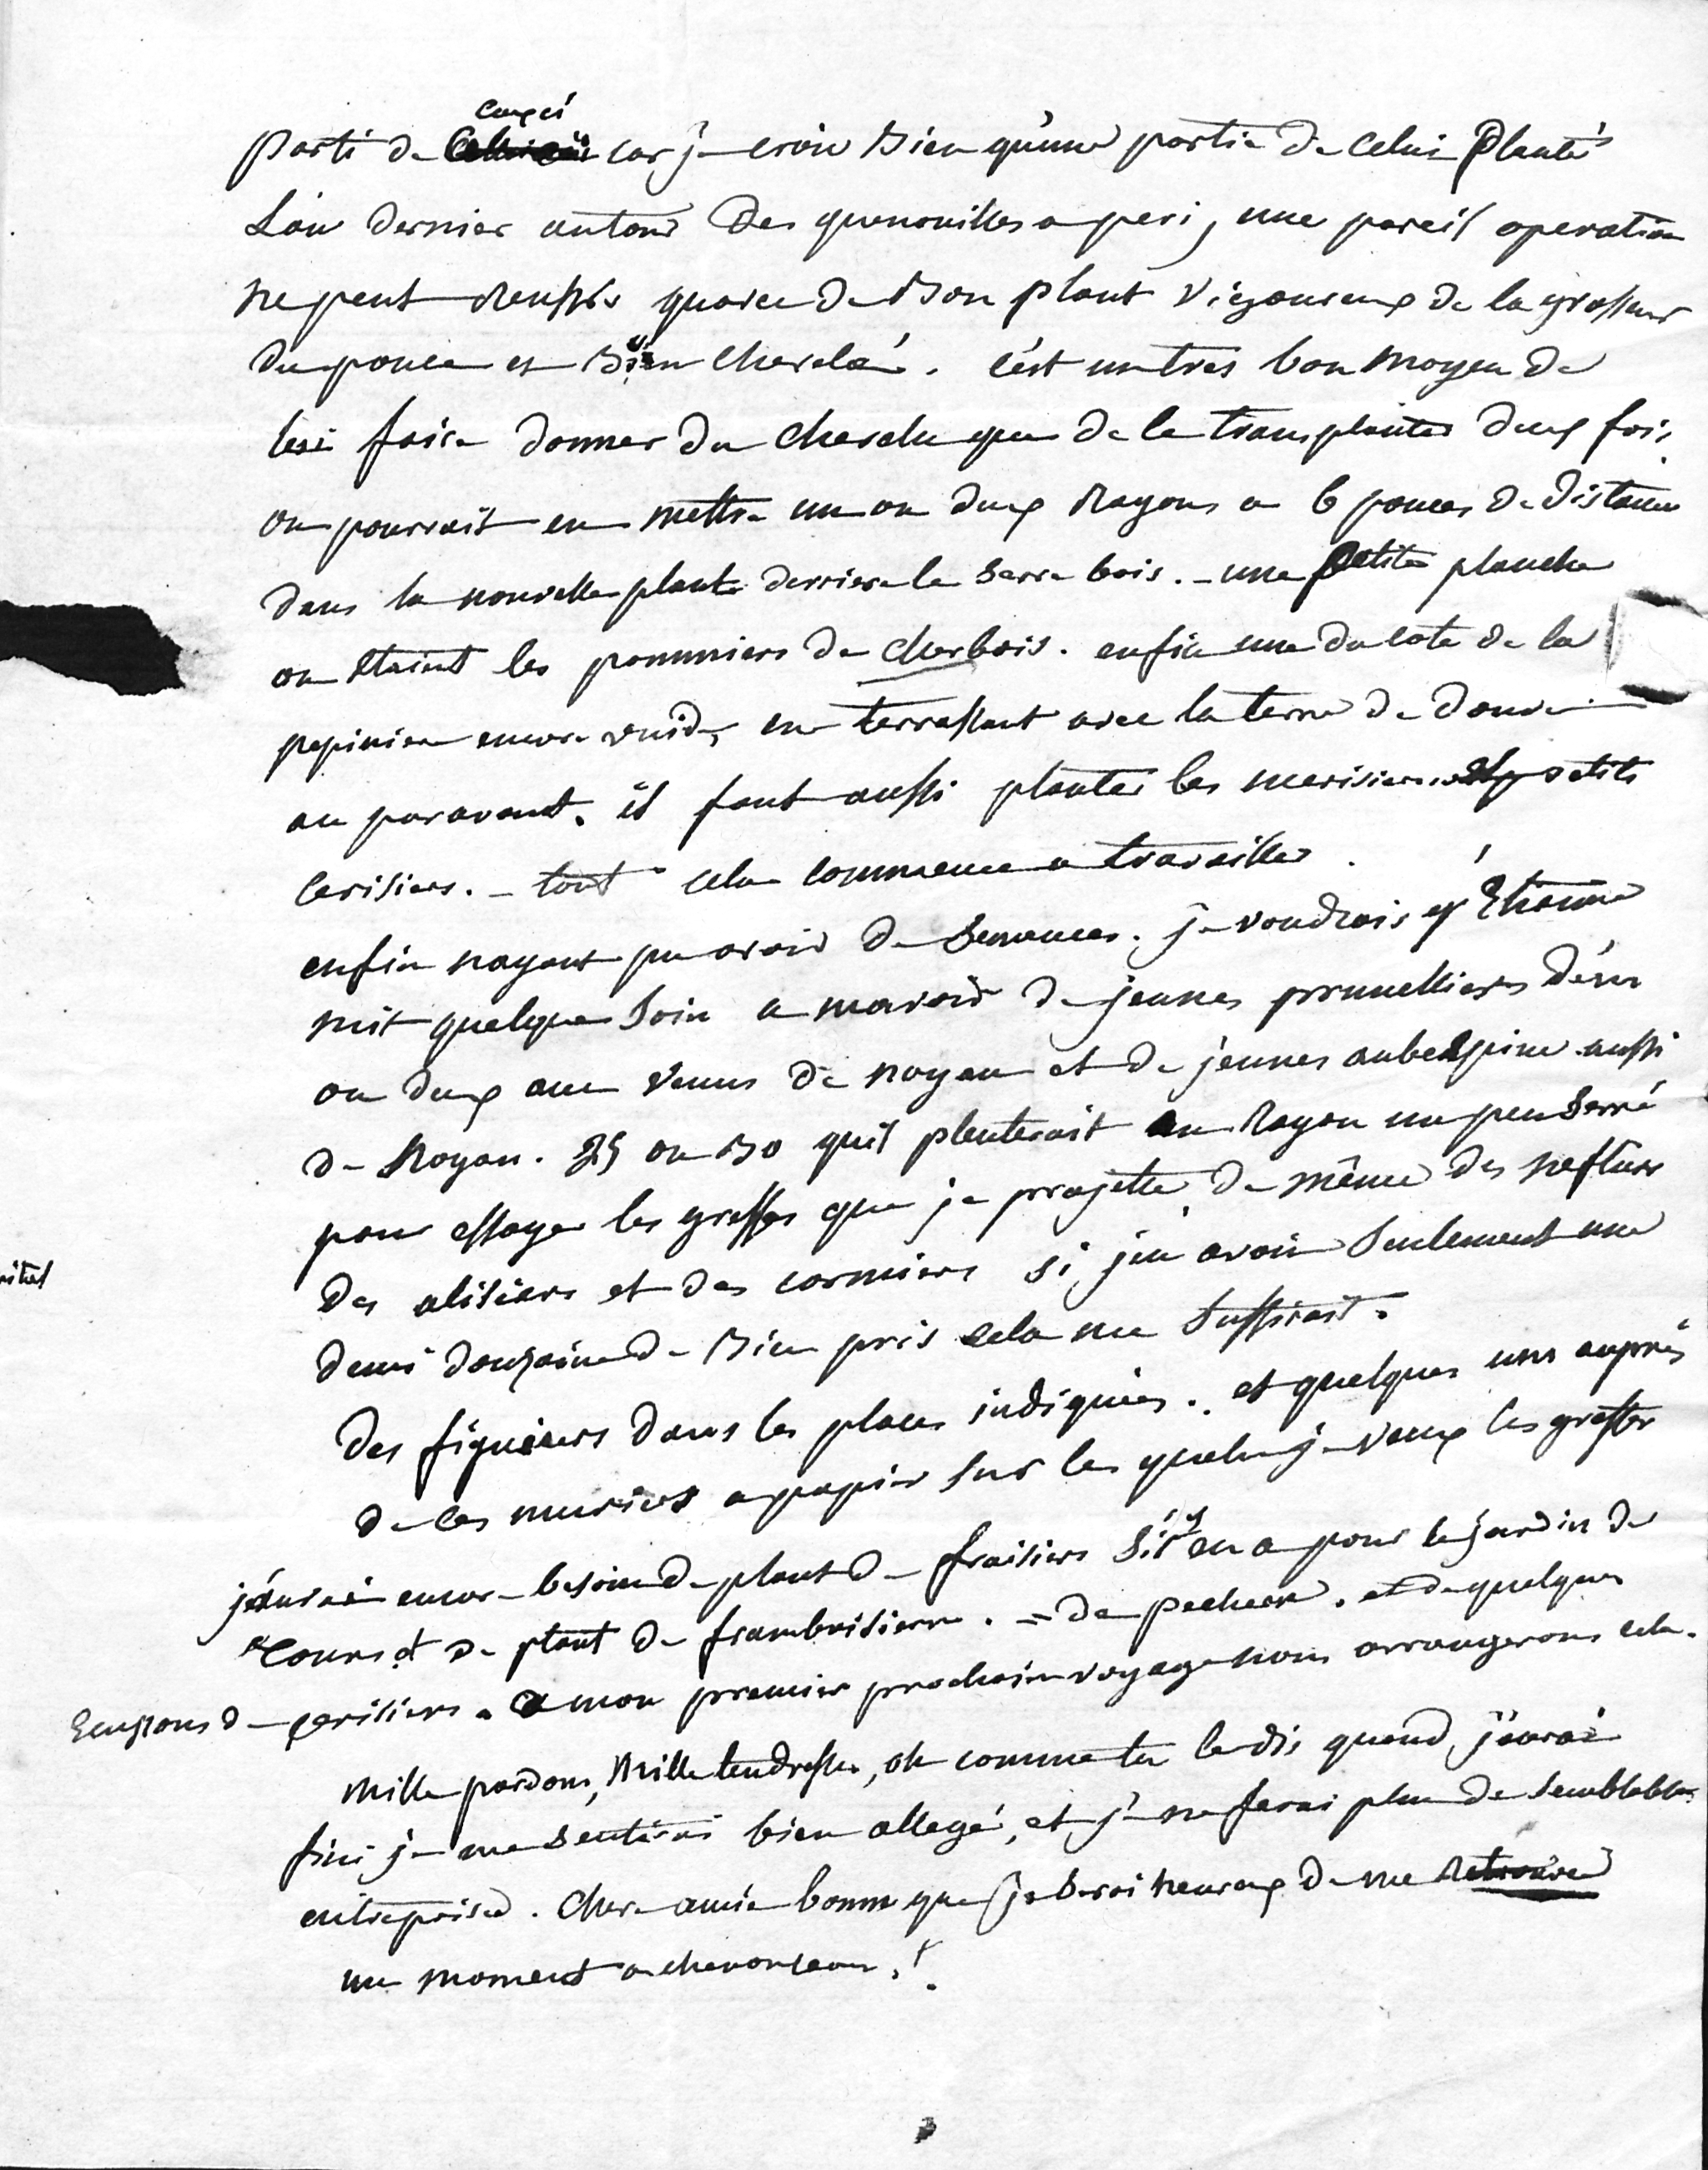 parti de car je crois bien qu'une partie de celui Planté
L'an dernier autour des quenouilles a peri, une pareil operation
ne peut reussir qu'avec de bon plant vigoureux de la grosseur
du pouce et bien chevelué. c'est un tres bon moyen de
faire donner du chevelu que de le transplanter deux fois.
on pourrait en mettre un ou deux Rayons a 6 pouces de distance
dans la nouvelle plante derriere le serre bois. - une petite planche
ou étaient les pommiers de cherbois. enfin une du coté de la
pepiniere encore vuide, en terrassant avec la terre de douve
au paravant. il faut aussi planter les merisiers et petits
cerisiers. - tout cela commence a travailler.
enfin nayant pu avoir de semences. je voudrais q' Etienne
mit quelque soin a mavoir de jeunes prunelliers d'un
ou deux ans venus de noyau et de jeunes aubespine aussi
de Noyau. 25 ou 30 quil planterait en Rayon un peu serré
pour essayer les greffes que je projette, de même des nefliers
des alisiers et des cormiers si j'en avais seulement une
demi douzaine de bien pris cela me suffirait.
Des figuiers dans les places indiquées. et quelques uns auprès
de ces muriers a papier sur les quels je veux les greffer
j'aurai encore besoin de plant de fraisiers s'il y en a pour le jardin de
Tours et de plant de framboisiers. = de pecher. et de quelques
Ecussons de cerisiers. a mon premier prochain voyage nous arrangerons cela.
Mille pardons, Mille tendresses, oh comme tu le dis quand j'aurai
fini je me sentirai bien allegé, et je ne ferai plus de semblables
entreprises. Chere amie bonne que je serai heureux de me Retrouver
un moment a chenonceau.!